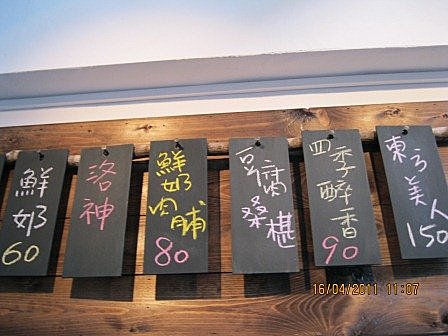 鮮奶
60
洛神
鮮奶
肉脯
80
豆腐
桑椹
四季醉香
90
東方美人
150
16/04/2011 11:07